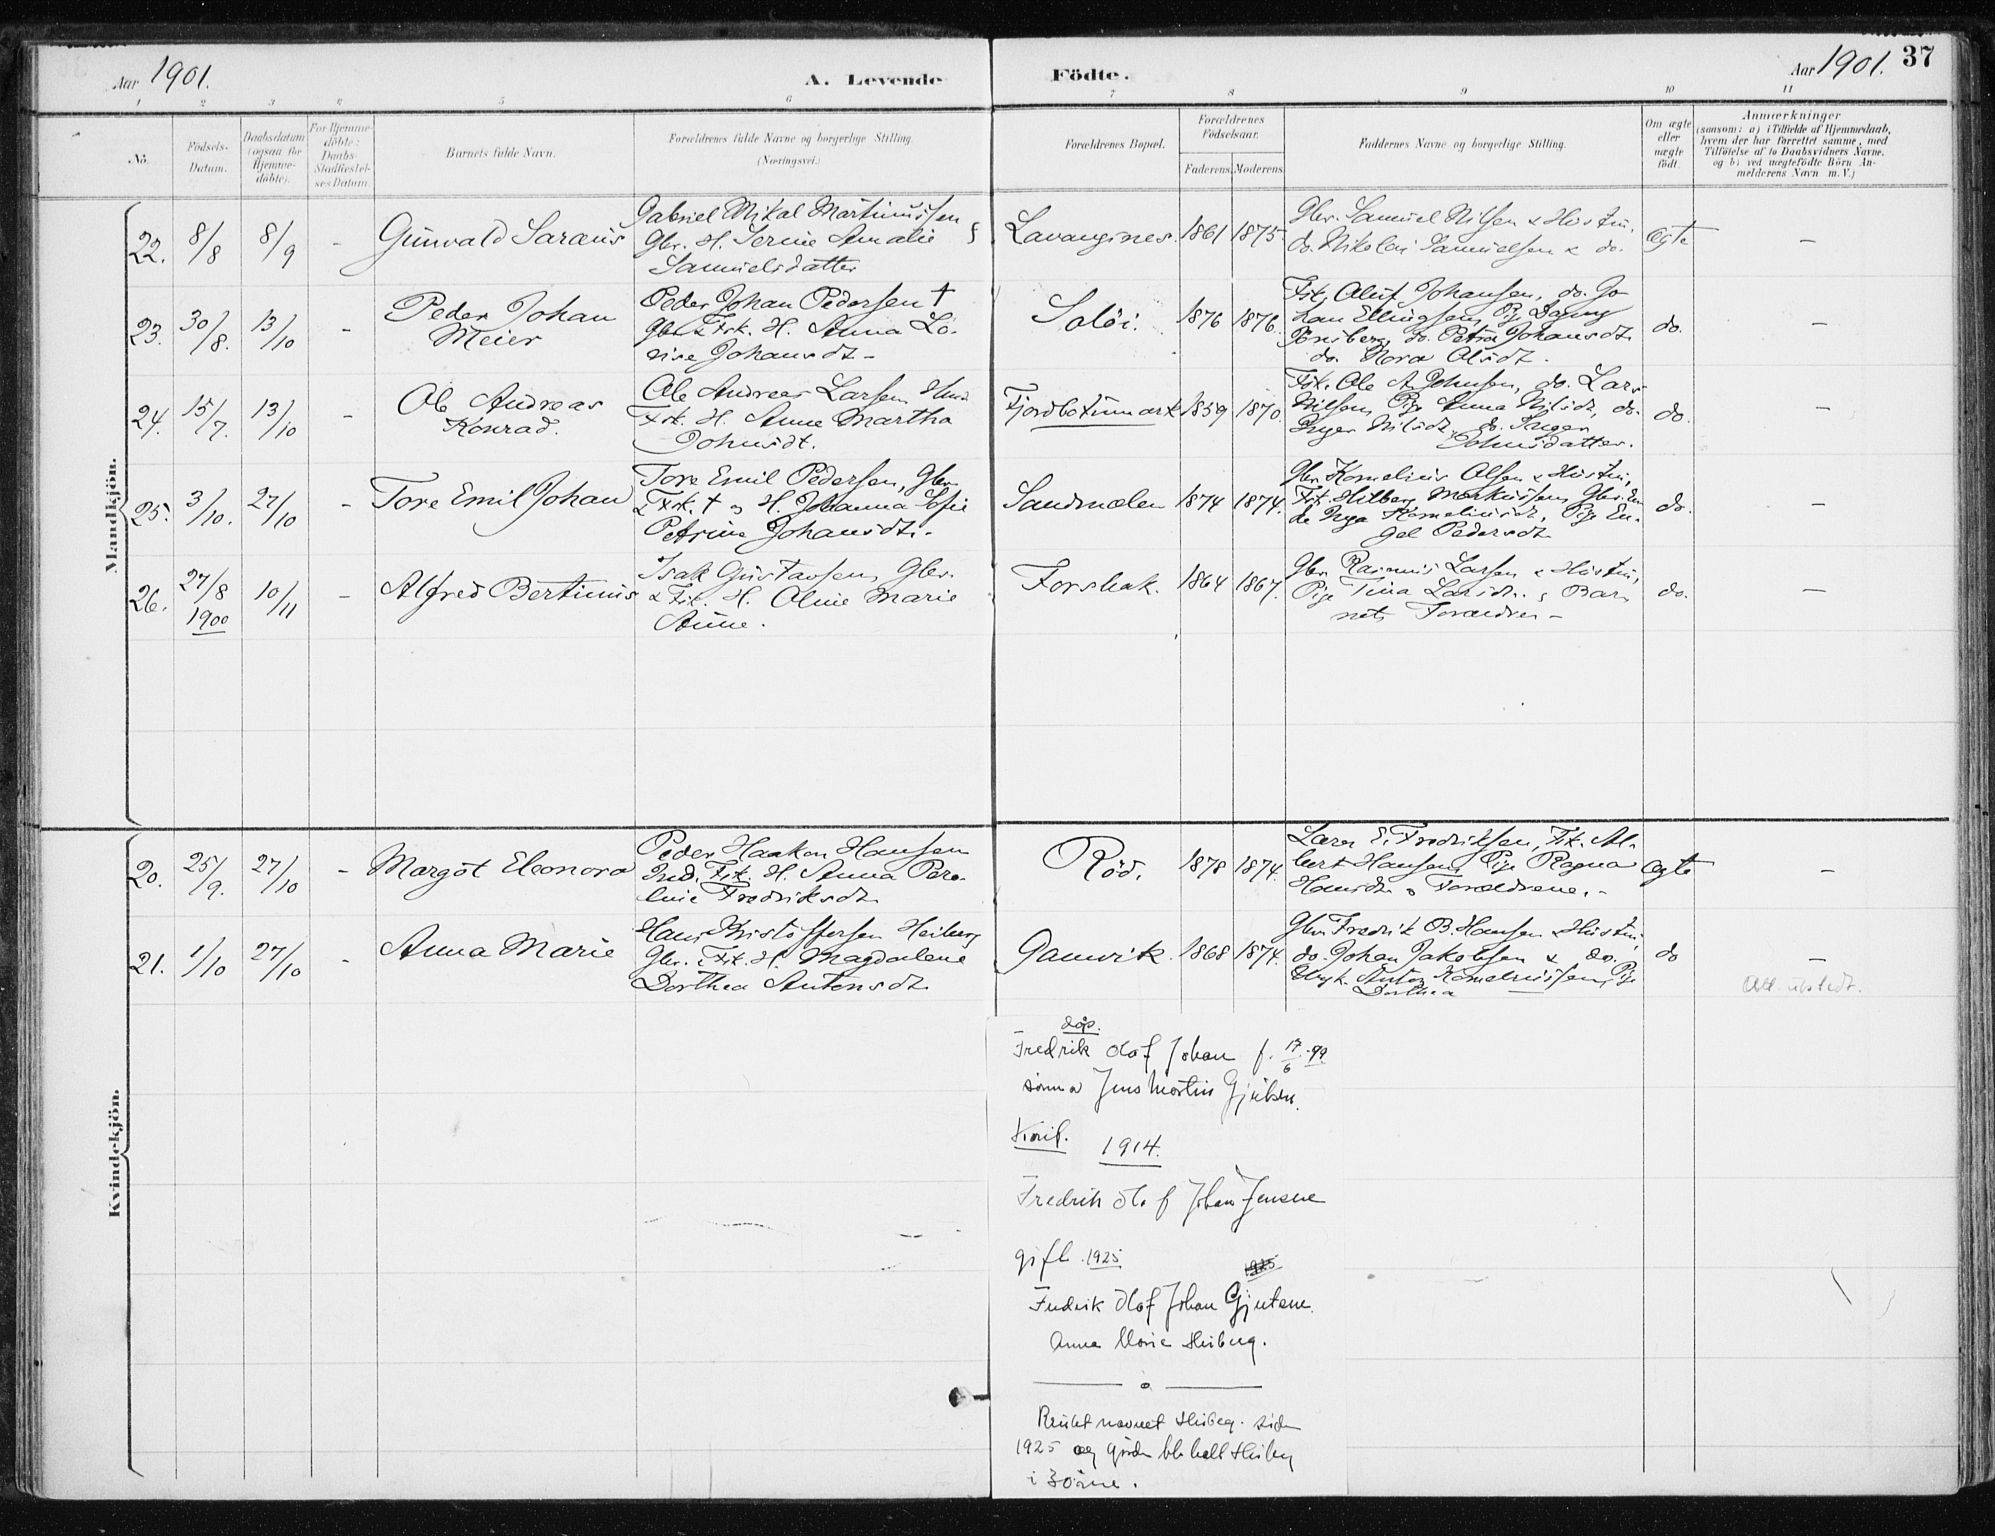 Aar 1901.
A. Levende Födte.
Aar 1901. 37
1 2 3 4 5 6 7 8 9 10 11
No.
Födsels-
Datum.
Daabsdatum
(ogsaa for
Hjemme-
döbte).
For Hjemme-
döbte:
Daabs-
Stadfæstel-
ses Datum.
Barnets fulde Navn.
Forældrenes fulde Navne og borgerlige Stilling.
(Næringsvei.)
Forældrenes Bopæl.
Forældrenes
Födselsaar.
Faderens. Moderens.
Faddernes Navne og borgerlige Stilling.
Om ægte
eller
uægte
födt.
Anmærkninger
(saasom: a) i Tilfælde af Hjemmedaab,
hvem der har forrettet samme, med
Tilföielse af to Daabsvidners Navne.
og b) ved uægtefödte Börn An-
melderens Navn m. V.)
Mandkjön.
22. 8/8 8/9 - Gunvald Saraus
Gabriel Mikal Martinussen
Gbr. H. Serine Amalie
Samuelsdatter
Lavangsnes. 1861 1875.
Gbr. Samuel Nilsen & Hustru,
do. Nikolai Samuelsen & do.
Ægte –
23. 30/8. 13/10 - Peder Johan
Meier
Peder Johan Pedersen †
Gbr & Fsk. H. Anna Lo-
vise Johansdt –
Solöi. 1876 1876.
Fsk. Oluf Johansen, do. Jo-
han Ellingsen, Pige Dagny
Tönsberg, do. Petra Johansdt.
do. Nora Olsdt.
do. –
24. 15/7. 13/10 - Ole Andreas
Konrad.
Ole Andreas Larsen,
Fsk. H. Anne Martha
Johnsdt.
Fjordbotnmark 1859 1870.
Fsk. Ole A Johnsen, do. Lars
Nilsen, Pige Anna Nilsdt, do.
Inger Nilsdt, do. Inger
Johnsdatter.
do. –
25. 3/10. 27/10 - Tore Emil Johan
Tore Emil Pedersen, Gbr.
& Fsk. † H. Johanna Sofie
Petrine Johansdt.
Sandmælen 1874 1874.
Gbr Kornelius Olsen & Hustru,
Fsk. Hilberg Markussen, Gbr. En-
ke Inga Korneliusdt, Pige En-
gel Pedersdt
do. –
26. 27/8 1900 10/11 - Alfred Bertinus
Isak Gustavsen, Gbr.
& Fsk. H. Oline Marie
Anne.
Forshak. 1864 1867.
Gbr. Rasmus Larsen & Hustru,
Pige Tina Larsdt. Bar-
nets Forældre –
do. –
Kvindekjön.
20. 25/9. 27/10 - Margot Eleonora
Peder Haakon Hansen
Inds. Fsk. H. Anna Pere-
line Fredriksdt.
Röd. 1878 1874.
Lærer E. Fredriksen, Fsk. Al-
bert Hansen, Pige Ragna
Hansdt Forældrene. –
Ægte –
21. 1/10 27/10 - Anna Marie
Hans Kristoffersen Heiberg
Gbr. Fsk. H. Magdalene
Dorthea Antonsdt.
Gamvik. 1868 1874.
Gbr. Fredrik B. Hansen & Hustru,
do. Johan Jakobsen & do.
Ungk. Anton Korneliussen, Pige
Dorthea
do –
Att. utstedt.
døp.
Fredrik Olaf Johan f. 17/6-99
sønn a Jens Martin
1914.
Fredrik Olaf Johan Jensen
gift 1925
Fredrik Olaf Johan
Anna Marie Heiberg.
Brukt navnet Heiberg siden
1925 og